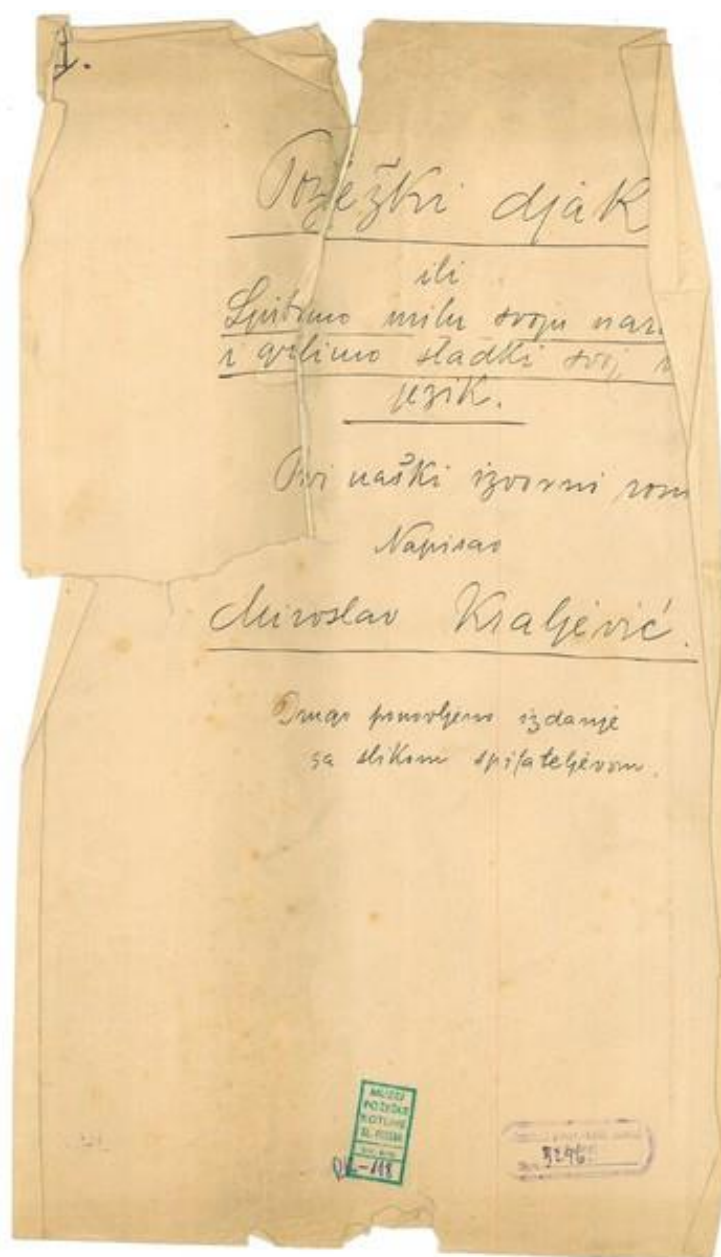 I.
Požežki djak
ili
Ljubimo milu svoju naro
i grlimo sladki svoj
jezik.
Prvi naški izvorni rom
Napisao
Miroslav Kraljević.
Drugo ponovljeno izdanje
sa slikom spisateljevom.
MUZEJ
POŽEŠKE
KOTLINE
SL. POŽEGA
-118